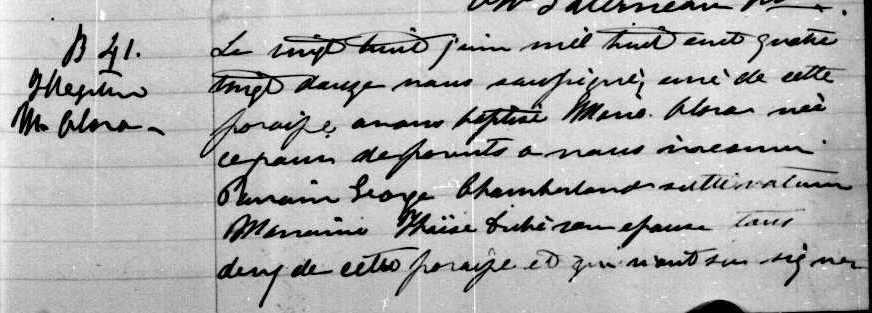 B 41.
Illegitime
M. Clora
Le vingt huit juin mil huit cent quatre
vingt douze nous soussigné, curé de cette
paroisse, avons baptisé Marie Clora née
ce jour de parents a nous inconnu
Parrain George Chamberland cultivateur
Marraine Thaïse Dubé son epouse tous
deux de cette paroisse et qui n'ont su signer